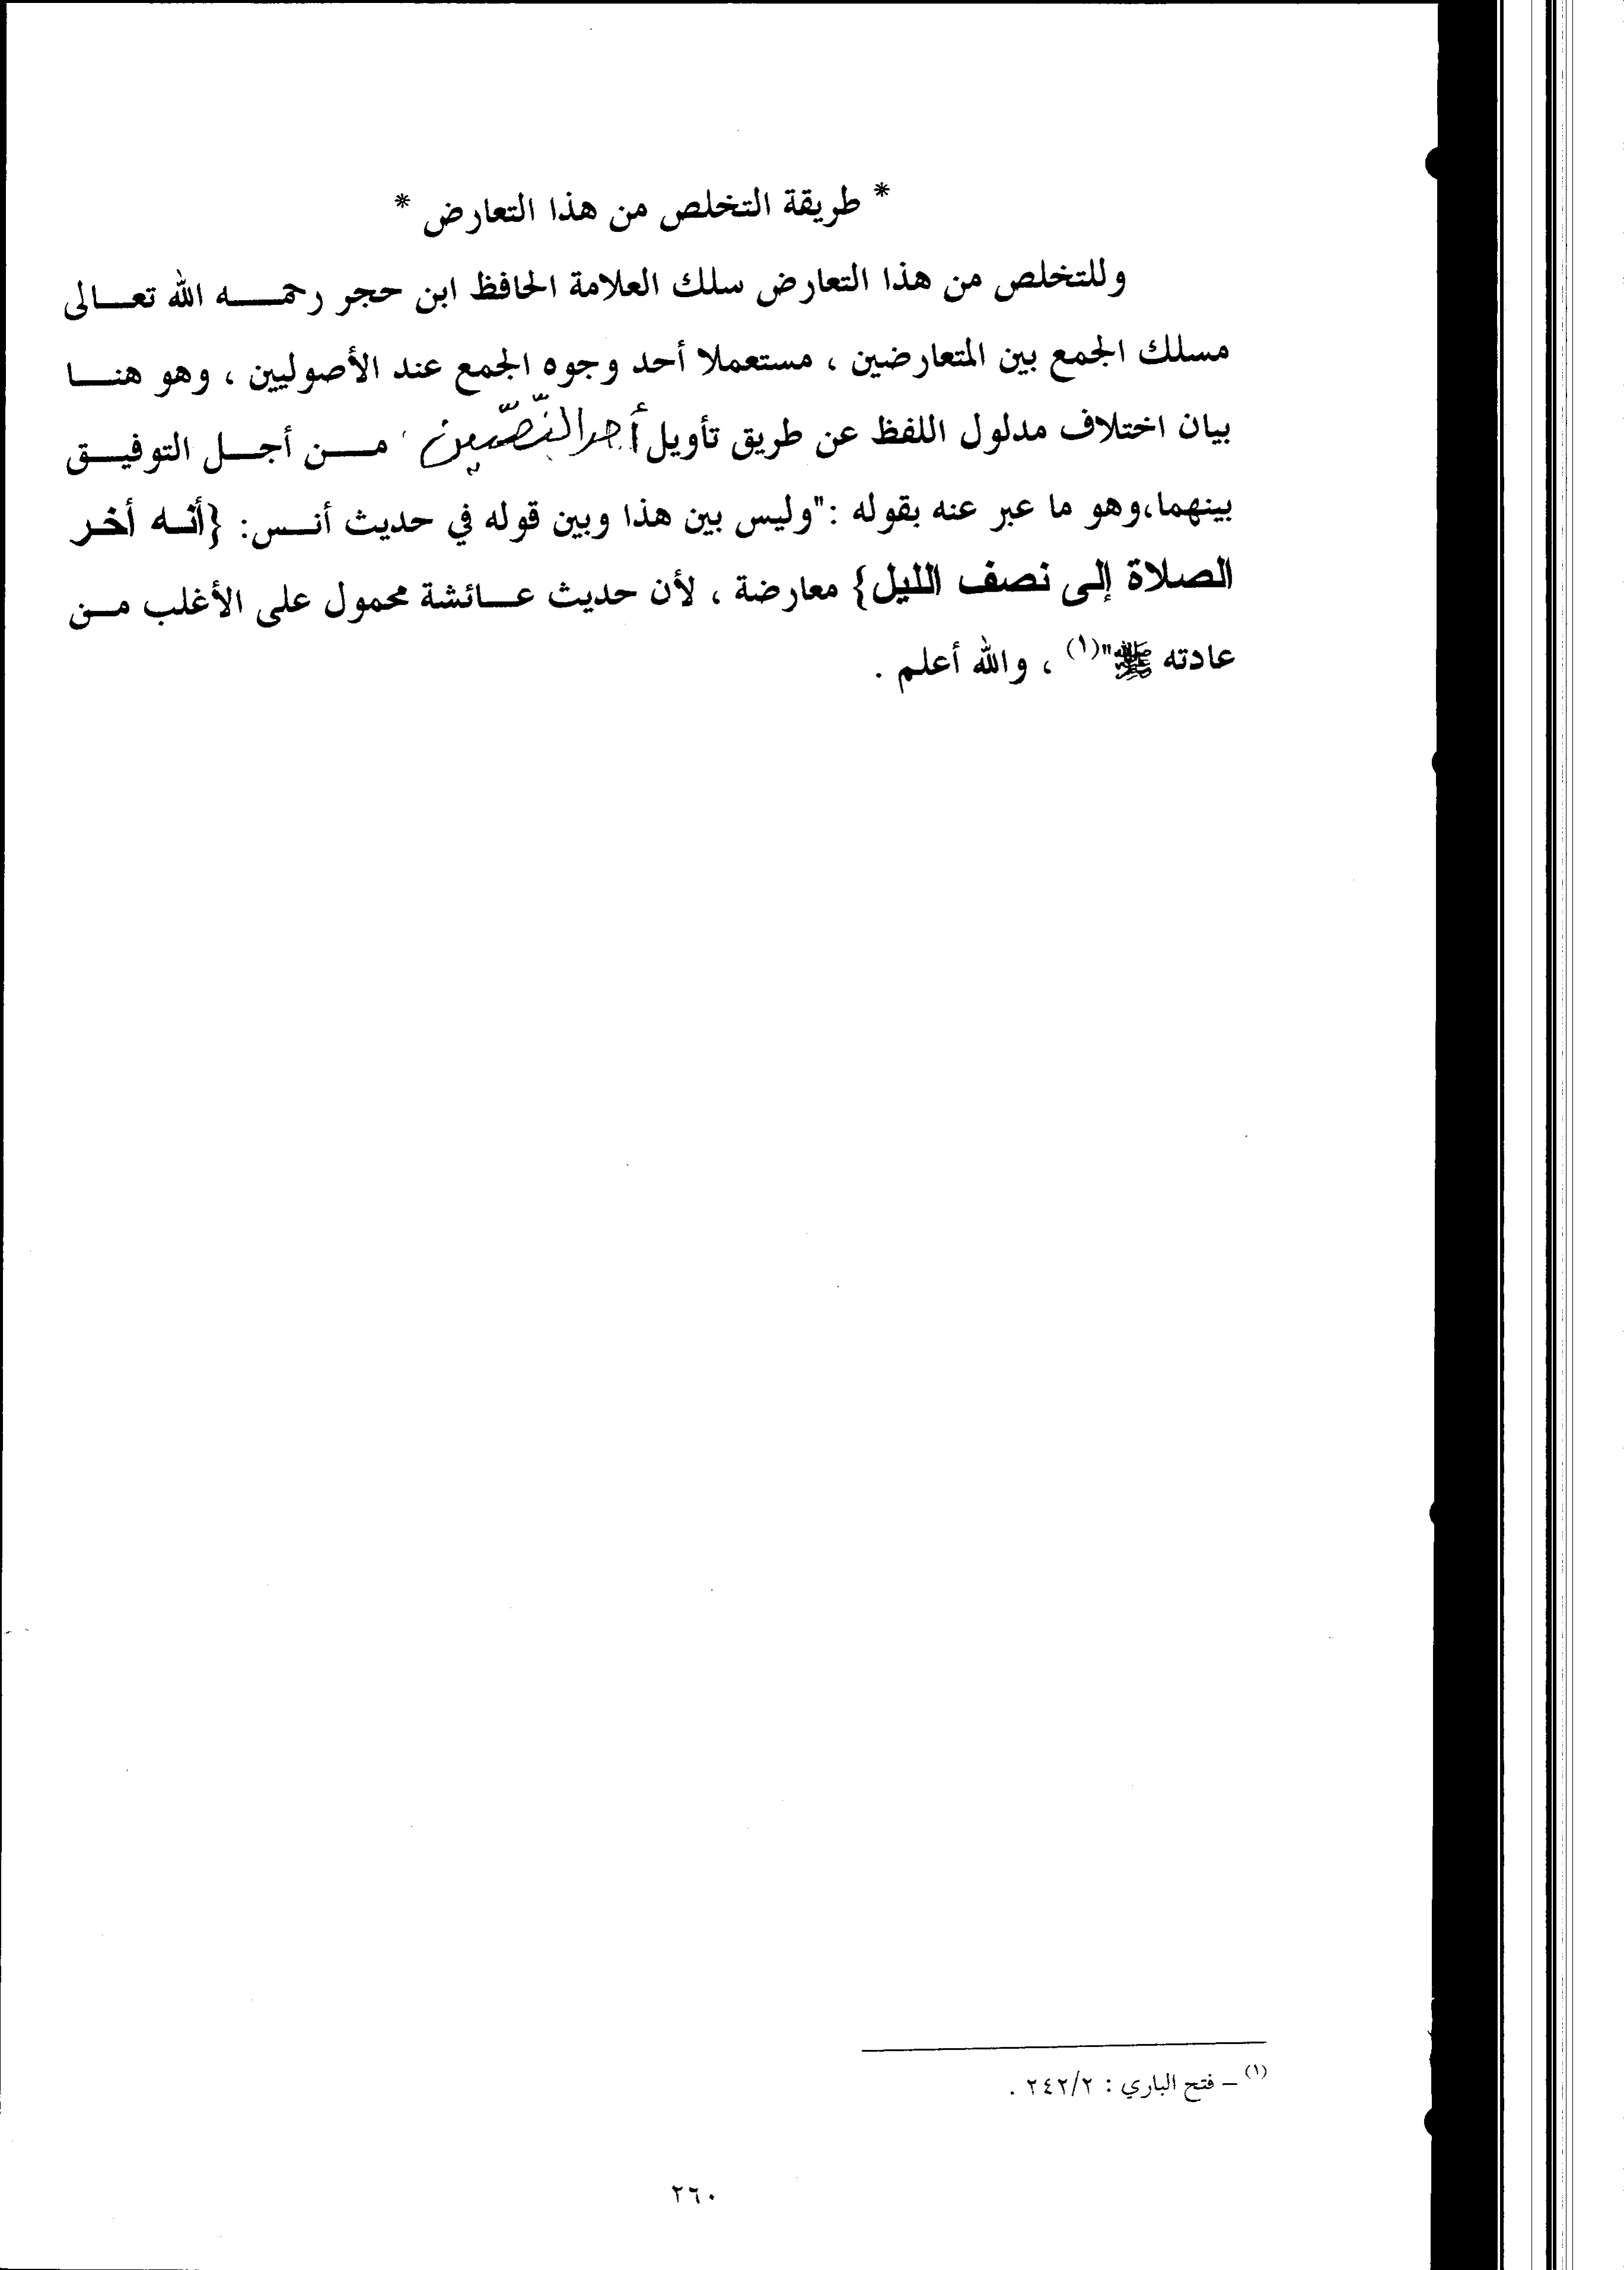 * طريقة التخلص من هذا التعارض *
وللتخلص من هذا التعارض سلك العلامة الحافظ ابن حجر رحمه الله تعالى
مسلك الجمع بين المتعارضين ، مستعملا أحد وجوه الجمع عند الأصوليين ، وهو هنا
بيان اختلاف مدلول اللفظ عن طريق تأويل أحد النّصّين من أجل التوفيق
بينهما،وهو ما عبر عنه بقوله :"وليس بين هذا وبين قوله في حديث أنس: {أنه أخر
الصلاة إلى نصف الليل} معارضة ، لأن حديث عائشة محمول على الأغلب من
عادته ﷺ"(١) ، والله أعلم .
(١) – فتح الباري : ٢٤٢/٢ .
٢٦٠